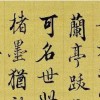 蘭亭跋
可名世
楮墨猶